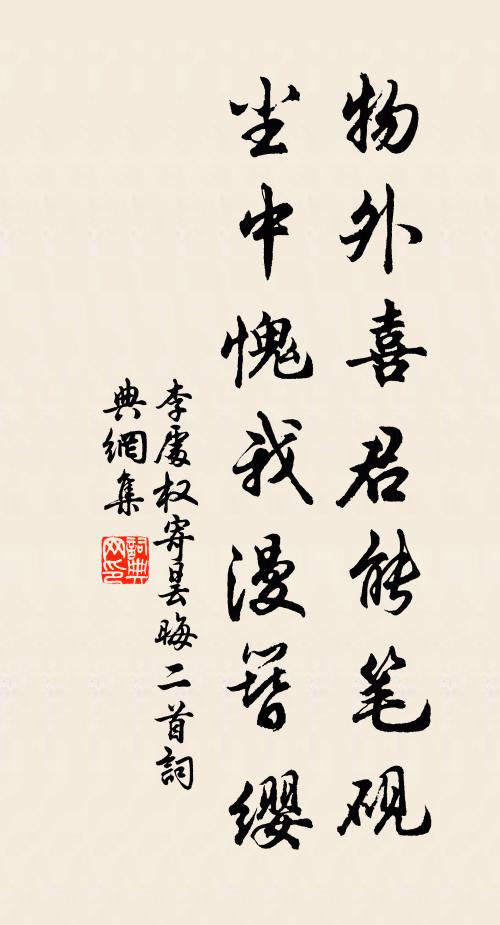 物外喜君能笔砚
尘中愧我漫簪缨
李處权寄昙晦二首詞
典網集
詞典
网印